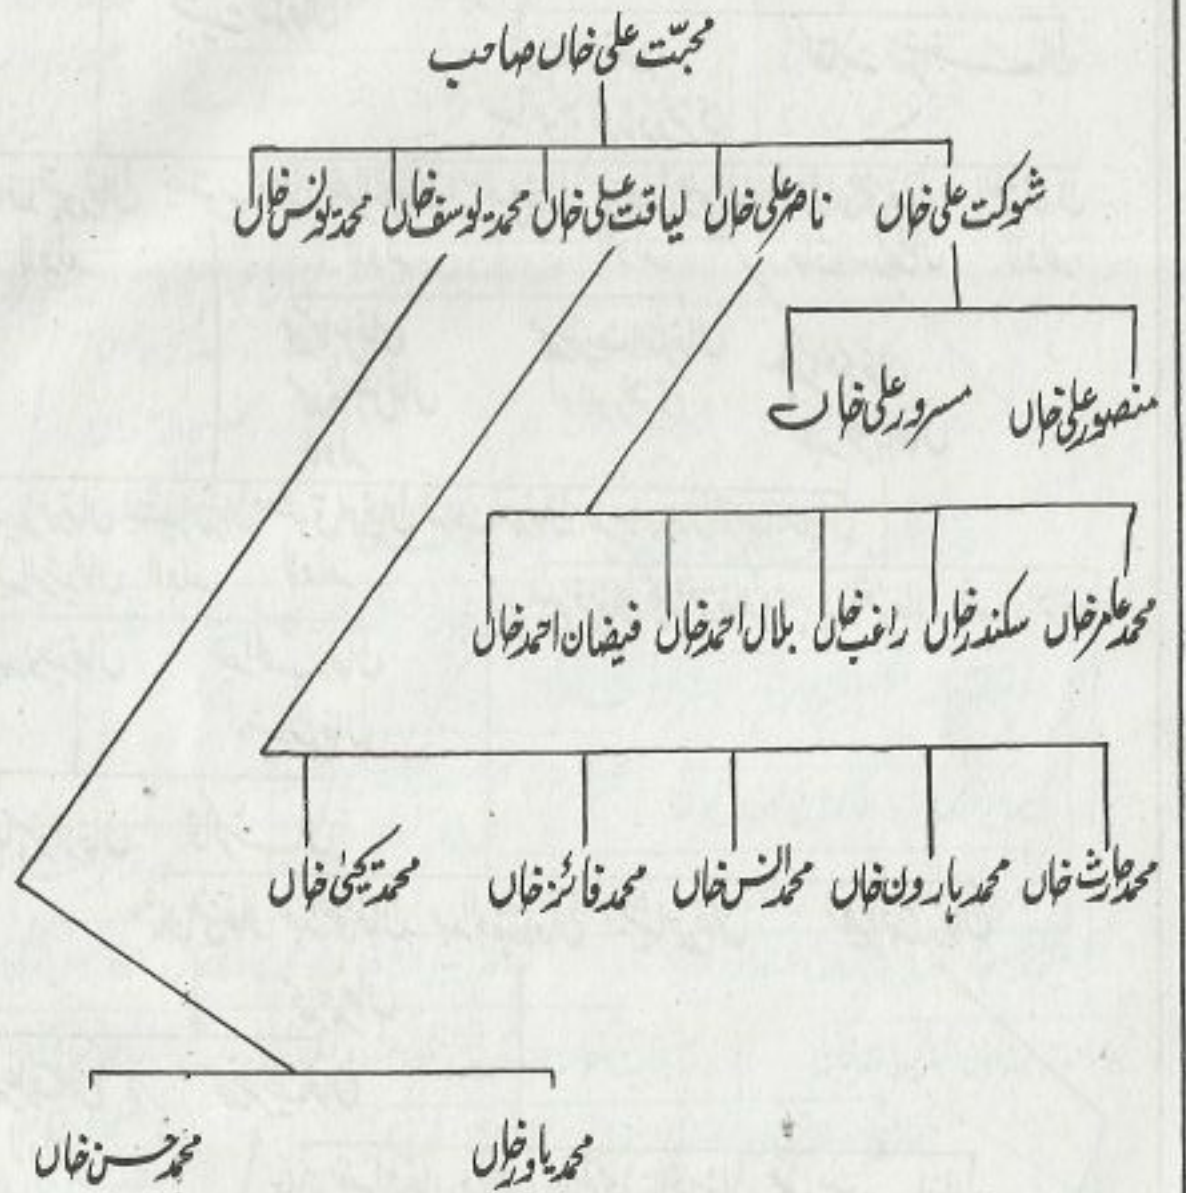 محبّت علی خاں صاحب
شوکت علی خاں ناصر علی خاں لیاقت علی خاں محمد یوسف خاں محمد یونس خاں
منصور علی خاں مسرور علی خاں
محمد عامر خاں سکندر خاں راغب خاں بلال احمد خاں فیضان احمد خاں
محمد حارث خاں محمد ہارون خاں محمد انس خاں محمد فائز خاں محمد یحیٰی خاں
محمد یاور خاں محمد حسن خاں